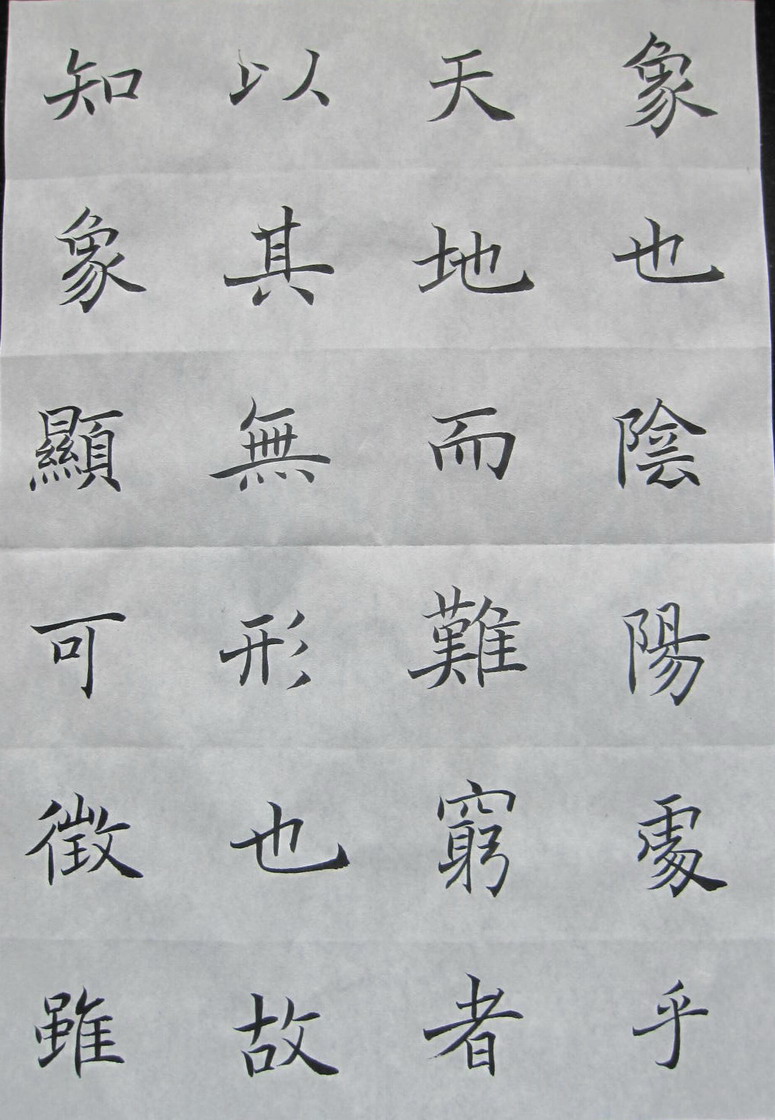 象也陰陽處乎
天地而難窮者
以其無形也故
知象顯可徵雖